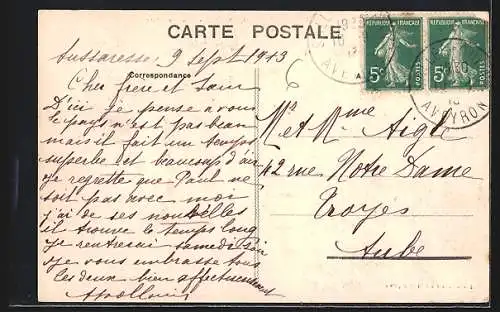 CARTE POSTALE
Aussaresse 9 Sept 1913
Correspondance
Cher frere et Sœur
D'ici je pense à vous
le pays n'est pas beau
mais il fait un temps
superbe et beaucoup d'air
je regrette que Paul ne
soit pas avec moi
j'ai de ses nouvelles
il trouve le temps long
je rentrerai samedi soir
je vous embrasse tous
les deux bien affectueusement
Mr et Mme Aigle
42 rue Notre Dame
Troyes
Aube
RÉPUBLIQUE FRANÇAISE
5c
POSTES
FRANÇAISE
5c
POSTES
AVEYRON